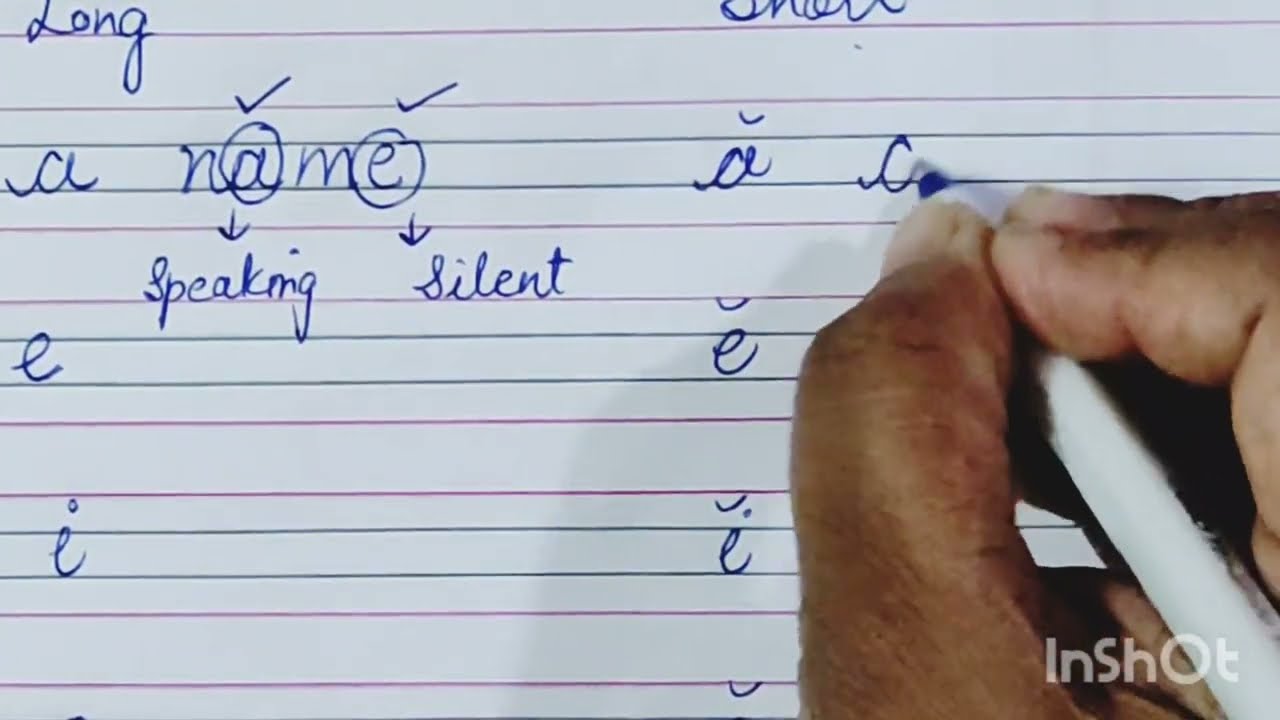 Long Short
a name ă
speaking silent
e ĕ
i ĭ
InShOt